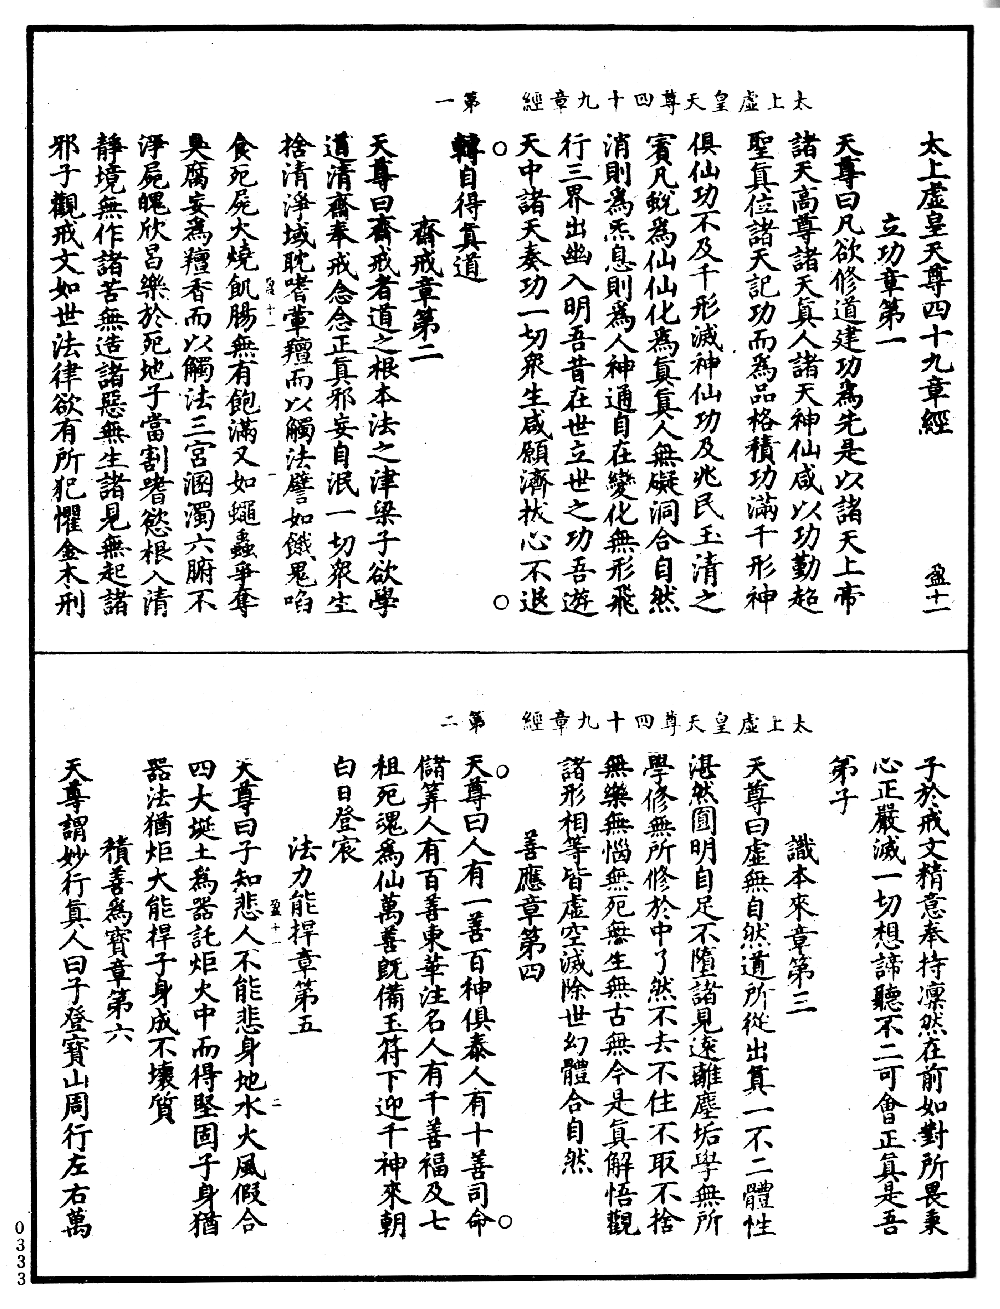 太上虛皇天尊四十九章經　第一
太上虛皇天尊四十九章經　盈十一
立功章第一
天尊曰凡欲修道建功為先是以諸天上帝
諸天高尊諸天真人諸天神仙咸以功勤超
聖真位諸天記功而為品格積功滿千形神
俱仙功不及千形滅神仙功及兆民玉清之
賓凡蛻為仙仙化為真真人無礙洞合自然
消則為炁息則為人神通自在變化無形飛
行三界出幽入明吾昔在世立世之功吾遊
天中諸天奏功一切眾生咸願濟拔心不退
轉自得真道
齋戒章第二
天尊曰齋戒者道之根本法之津梁子欲學
道清齋奉戒念念正真邪妄自泯一切眾生
捨清淨域耽嗜葷羶而以觸法譬如餓鬼啗
食死屍大燒飢腸無有飽滿又如蠅蟲爭奪
臭腐妄為羶香而以觸法三宮溷濁六腑不
淨屍魄欣昌樂於死地子當割嗜慾根入清
靜境無作諸苦無造諸惡無生諸見無起諸
邪子觀戒文如世法律欲有所犯懼金木刑
太上虛皇天尊四十九章經　第二
子於戒文精意奉持凜然在前如對所畏秉
心正嚴滅一切想諦聽不二可會正真是吾
弟子
識本來章第三
天尊曰虛無自然道所從出真一不二體性
湛然圓明自足不墮諸見遠離塵垢學無所
學修無所修於中了然不去不住不取不捨
無樂無惱無死無生無古無今是真解悟觀
諸形相等皆虛空滅除世幻體合自然
善應章第四
天尊曰人有一善百神俱泰人有十善司命
儲筭人有百善東華注名人有千善福及七
祖死魂為仙萬善既備玉符下迎千神來朝
白日登宸
法力能捍章第五
天尊曰子知悲人不能悲身地水火風假合
四大埏土為器託炬火中而得堅固子身猶
器法猶炬大能捍子身成不壞質
積善為寶章第六
天尊謂妙行真人曰子登寶山周行左右萬
0333